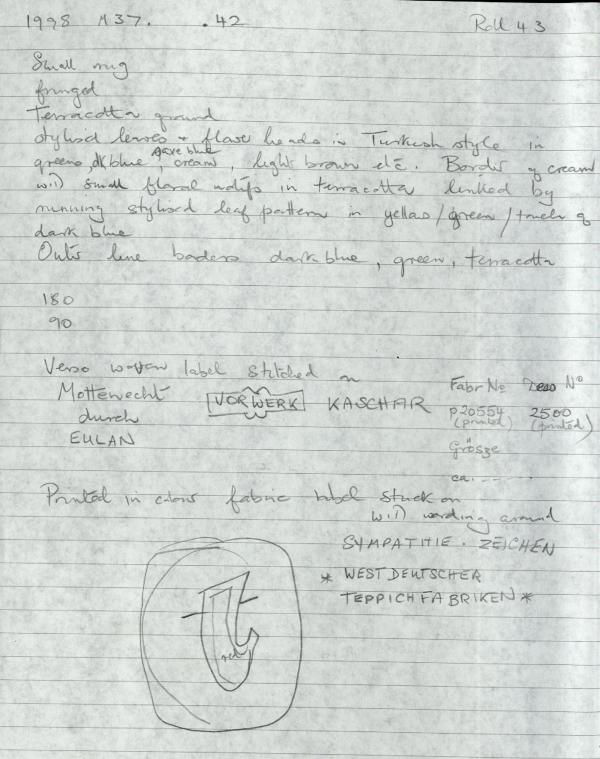 1998 M37. .42 Roll 43
Small rug
fringed
Terracotta ground
stylised leaves + flower heads in Turkish style in
greens, dk blue, cream, light brown etc. Border of cream
with small floral motifs in terracotta linked by
running stylised leaf pattern in yellow/green/touch of
dark blue
Outer line borders dark blue, green, terracotta
180
90
Verso woven label stitched on
Mottenecht VORWERK KASCHAR Fabr No No
durch p20554 2500
(printed) (printed)
EULAN Grösze
ca.......
Printed in colour fabric label stuck on
with wording around
SYMPATHIE. ZEICHEN
* WESTDEUTSCHER
TEPPICHFABRIKEN *
red